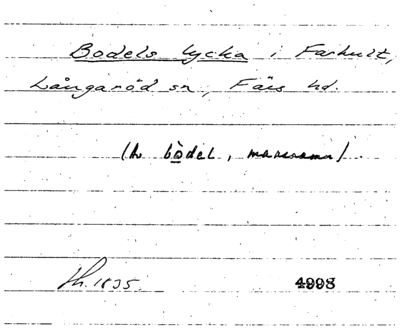 Bodels lycka i Farhult,
Långaröd sn, Färs hd.
(Av bödel, mansnamn).
1835. 4998